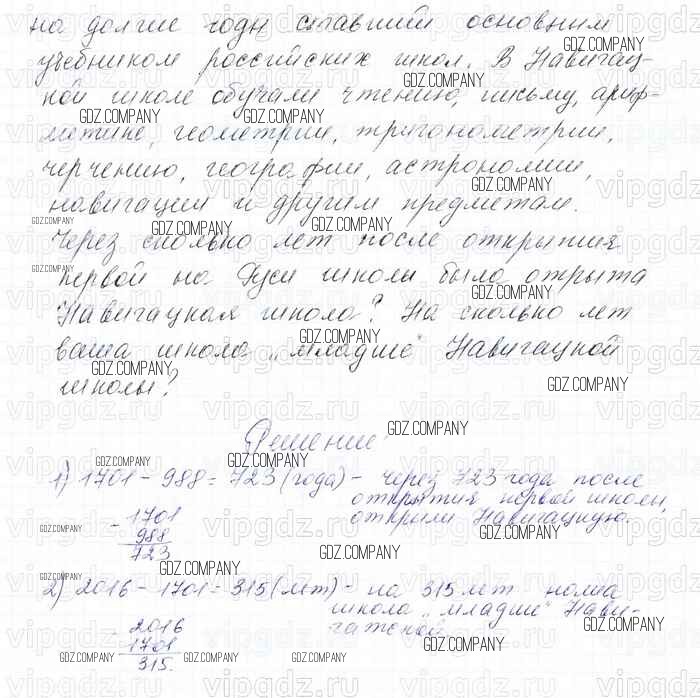 на долгие годы ставший основным
учебником российских школ. В Навигац-
кой школе обучали чтению, письму, ариф-
метике, геометрии, тригонометрии,
черчению, географии, астрономии,
навигации и другим предметам.
Через сколько лет после открытия
первой на Руси школы была открыта
Навигацкая школа? На сколько лет
ваша школа "младше" Навигацкой
школы?
Решение:
1) 1701 - 988 = 723 (года) - через 723 года после
открытия первой школы,
открыли Навигацкую.
- 1701
988
723
2) 2016 - 1701 = 315 (лет) - на 315 лет наша
школа "младше" Нави-
гатской
- 2016
1701
315.
GDZ.COMPANY
vipgdz.ru